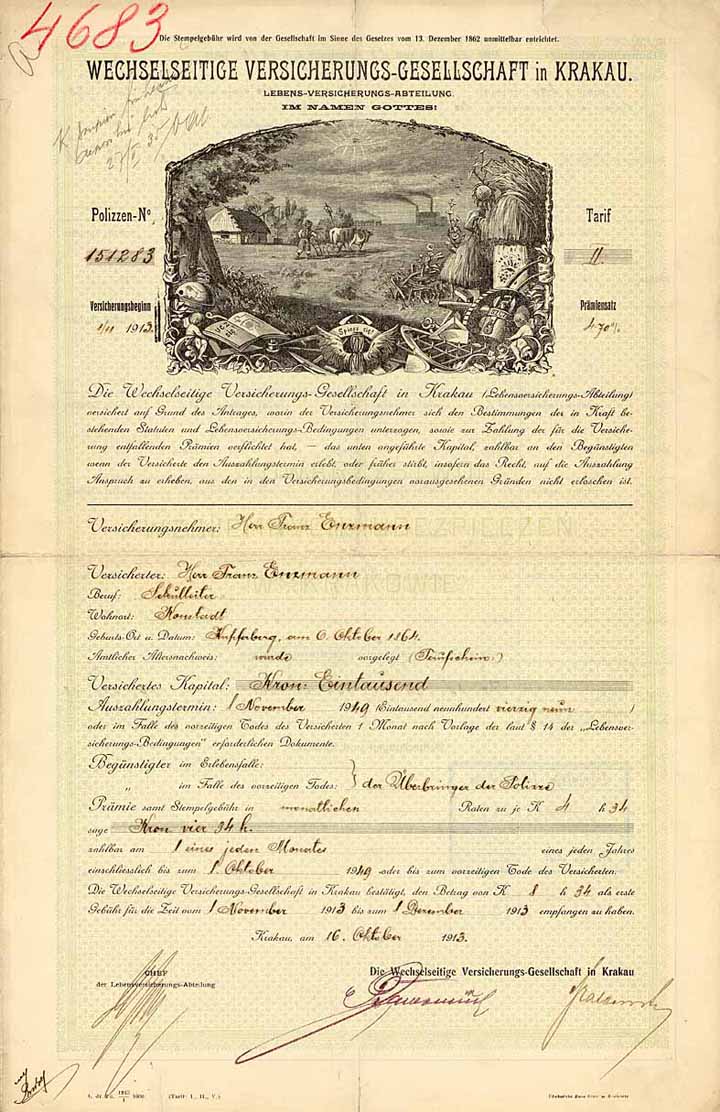 4683
Die Stempelgebühr wird von der Gesellschaft im Sinne des Gesetzes vom 13. Dezember 1862 unmittelbar entrichtet.
WECHSELSEITIGE VERSICHERUNGS-GESELLSCHAFT in KRAKAU.
LEBENS-VERSICHERUNGS-ABTEILUNG.
IM NAMEN GOTTES!
Polizzen-No
151283
Versicherungsbeginn
1/11 1913
Tarif
II.
Prämiensatz
4·70%
Die Wechselseitige Versicherungs-Gesellschaft in Krakau (Lebensversicherungs-Abteilung)
versichert auf Grund des Antrages, worin der Versicherungsnehmer sich den Bestimmungen der in Kraft be-
stehenden Statuten und Lebensversicherungs-Bedingungen unterzogen, sowie zur Zahlung der für die Versiche-
rung entfallenden Prämien verflichtet hat, — das unten angeführte Kapital, zahlbar an den Begünstigten
wenn der Versicherte den Auszahlungstermin erlebt, oder früher stirbt, insofern das Recht, auf die Auszahlung
Anspruch zu erheben, aus den in den Versicherungsbedingungen vorausgesehenen Gründen nicht erloschen ist.
Versicherungsnehmer: Herr Franz Enzmann
Versicherter: Herr Franz Enzmann
Beruf: Schulleiter
Wohnort: Konstadt
Geburts-Ort u. Datum: Kupferberg, am 6. Oktober 1864.
Amtlicher Altersnachweis: wurde vorgelegt (Taufschein.)
Versichertes Kapital: Kron: Eintausend
Auszahlungstermin: 1 November 1949 (Eintausend neunhundert vierzig neun )
oder im Falle des vorzeitigen Todes des Versicherten 1 Monat nach Vorlage der laut § 14 der „Lebensver-
sicherungs-Bedingungen" erforderlichen Dokumente.
Begünstigter im Erlebensfalle:
„ im Falle des vorzeitigen Todes: } der Überbringer der Polizze
Prämie samt Stempelgebühr in monatlichen Raten zu je K 4 h 34
sage Kron vier 34 h.
zahlbar am 1 eines jeden Monates eines jeden Jahres
einschliesslich bis zum 1. Oktober 1949 oder bis zum vorzeitigen Tode des Versicherten.
Die Wechselseitige Versicherungs-Gesellschaft in Krakau bestätigt, den Betrag von K 8 h 34 als erste
Gebühr für die Zeit vom 1 November 1913 bis zum 1 Dezember 1913 empfangen zu haben.
Krakau, am 16. Oktober 1913.
CHEF
der Lebensversicherungs-Abteilung
Die Wechselseitige Versicherungs-Gesellschaft in Krakau
(Tarif: I., II., V.)